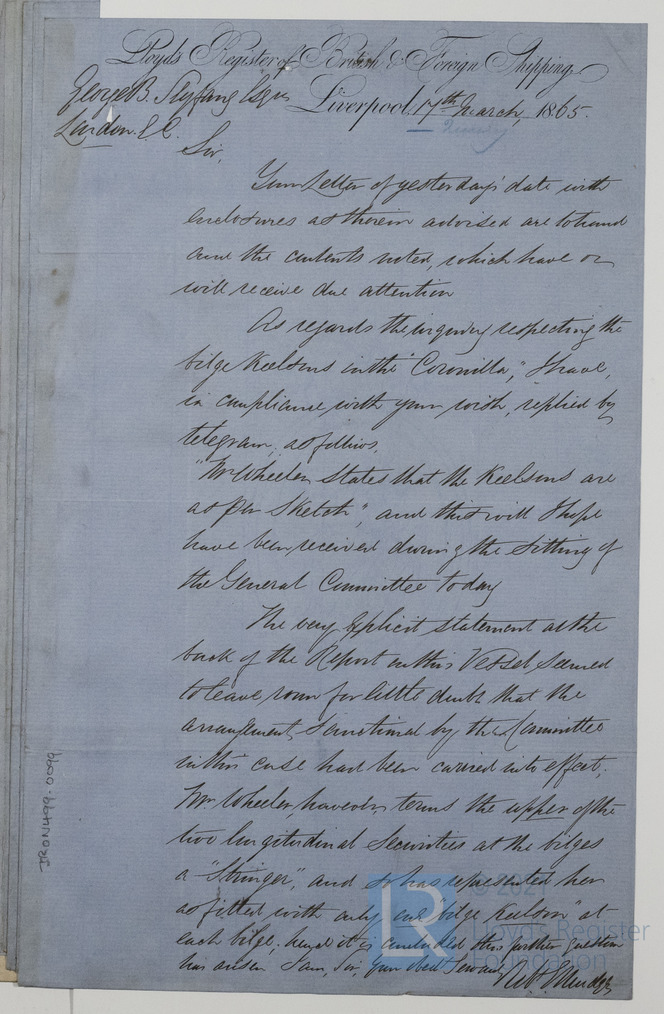 Lloyd's Register of British & Foreign Shipping
George B. Seyfang Esqre
Liverpool, 17th March, 1865.
London. E.C.
Sir,
Your Letter of yesterday's date with
enclosures as therein advised are to hand
and the contents noted, which have or
will receive due attention
As regards the inquiry respecting the
bilge Keelsons in the "Coronilla", I have,
in compliance with your wish, replied by
telegram, as follows,
"Mr Wheeler states that the Keelsons are
as per Sketch", and this will I hope
have been received during the Sitting of
the General Committee today
The very explicit statement at the
back of the Report on this Vessel seemed
to leave room for little doubt that the
arrangement sanctioned by the Committee
in this case had been carried into effect,
Mr Wheeler, however, terms the upper of the
two longitudinal Securities at the bilges
a "Stringer", and so has represented her
as fitted with only "one bilge Keelson" at
each bilge, hence it is concluded this further question
has arisen I am, Sir, Your Obedt Servant
IRON499-0099
LR
© 202
Lloyd's Register
Foundation